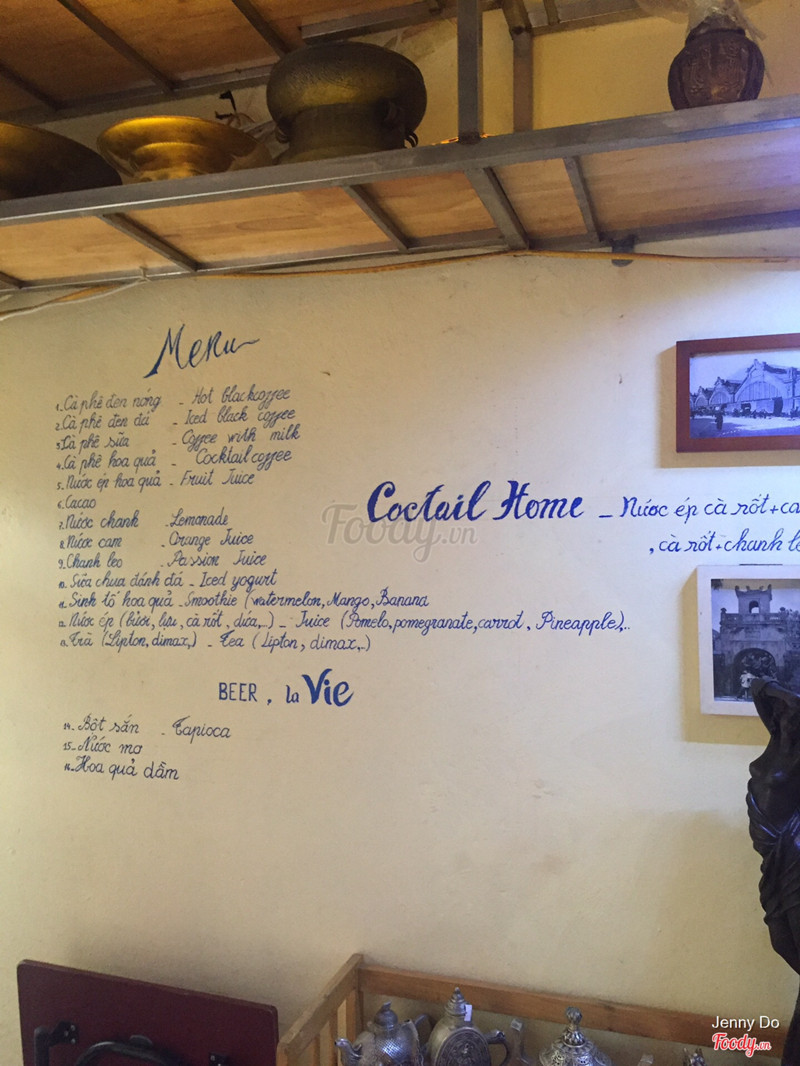 Menu
1. Cà phê đen nóng - Hot blackcoffee
2. Cà phê đen đá - Iced black coffee
3. Cà phê sữa - Coffee with milk
4. Cà phê hoa quả - Cocktail coffee
5. Nước ép hoa quả - Fruit Juice
6. Cacao
7. Nước chanh - Lemonade
8. Nước cam - Orange Juice
9. Chanh leo - Passion Juice
10. Sữa chua đánh đá - Iced yogurt
11. Sinh tố hoa quả - Smoothie (watermelon, Mango, Banana
12. Nước ép (bưởi, lựu, cà rốt, dứa,..) - Juice (Pomelo, pomegranate, carrot, Pineapple)..
13. Trà (Lipton, dimax,) - Tea (Lipton, dimax,..)
BEER, la Vie
14. Bột sắn - Tapioca
15. Nước mơ
16. Hoa quả dầm
Coctail Home - Nước ép cà rốt+ca
, cà rốt+chanh le
Foody.vn
Jenny Do
Foody.vn